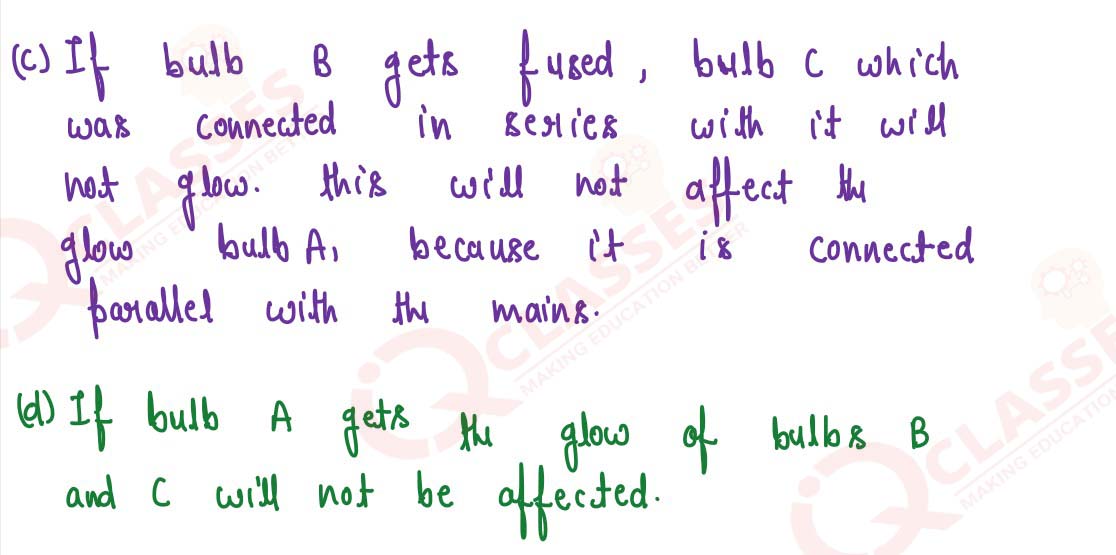 (c) If bulb B gets fused, bulb C which
was connected in series with it will
not glow. this will not affect the
glow bulb A, because it is connected
parallel with the mains.
(d) If bulb A gets the glow of bulbs B
and C will not be affected.
CLASSES
MAKING EDUCATION BETTER
CLASSES
MAKING EDUCATION BETTER
CLASSES
MAKING EDUCATION